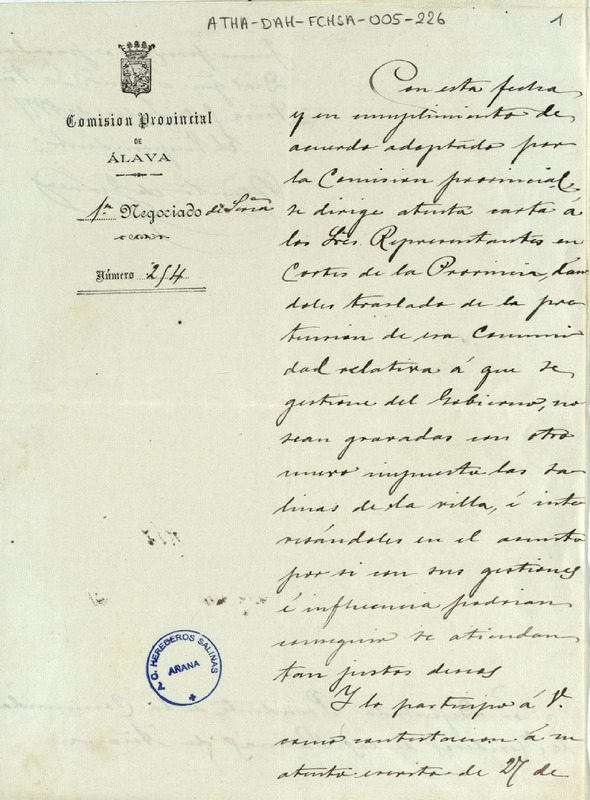 ATHA-DAH-FCHSA-005-226
1
Comision Provincial
DE
ÁLAVA
1.ª Negociado de Sría
Número 254
Con esta fecha
y en cumplimiento de
acuerdo adoptado por
la Comision provincial,
se dirige atenta carta á
los Sres. Representantes en
Cortes de la Provincia, dan
doles traslado de la pre
tension de esa Comuni
dad relativa á que se
gestione del Gobierno, no
sean gravadas con otro
nuevo impuesto las sa
linas de la villa, é inte
resándoles en el asunto
por si con sus gestiones
é influencia podrian
conseguir se atiendan
tan justos deseos
Y lo participo á V.
como contestacion á su
atento escrito de 27 de
C. G. HEREDEROS SALINAS
AÑANA